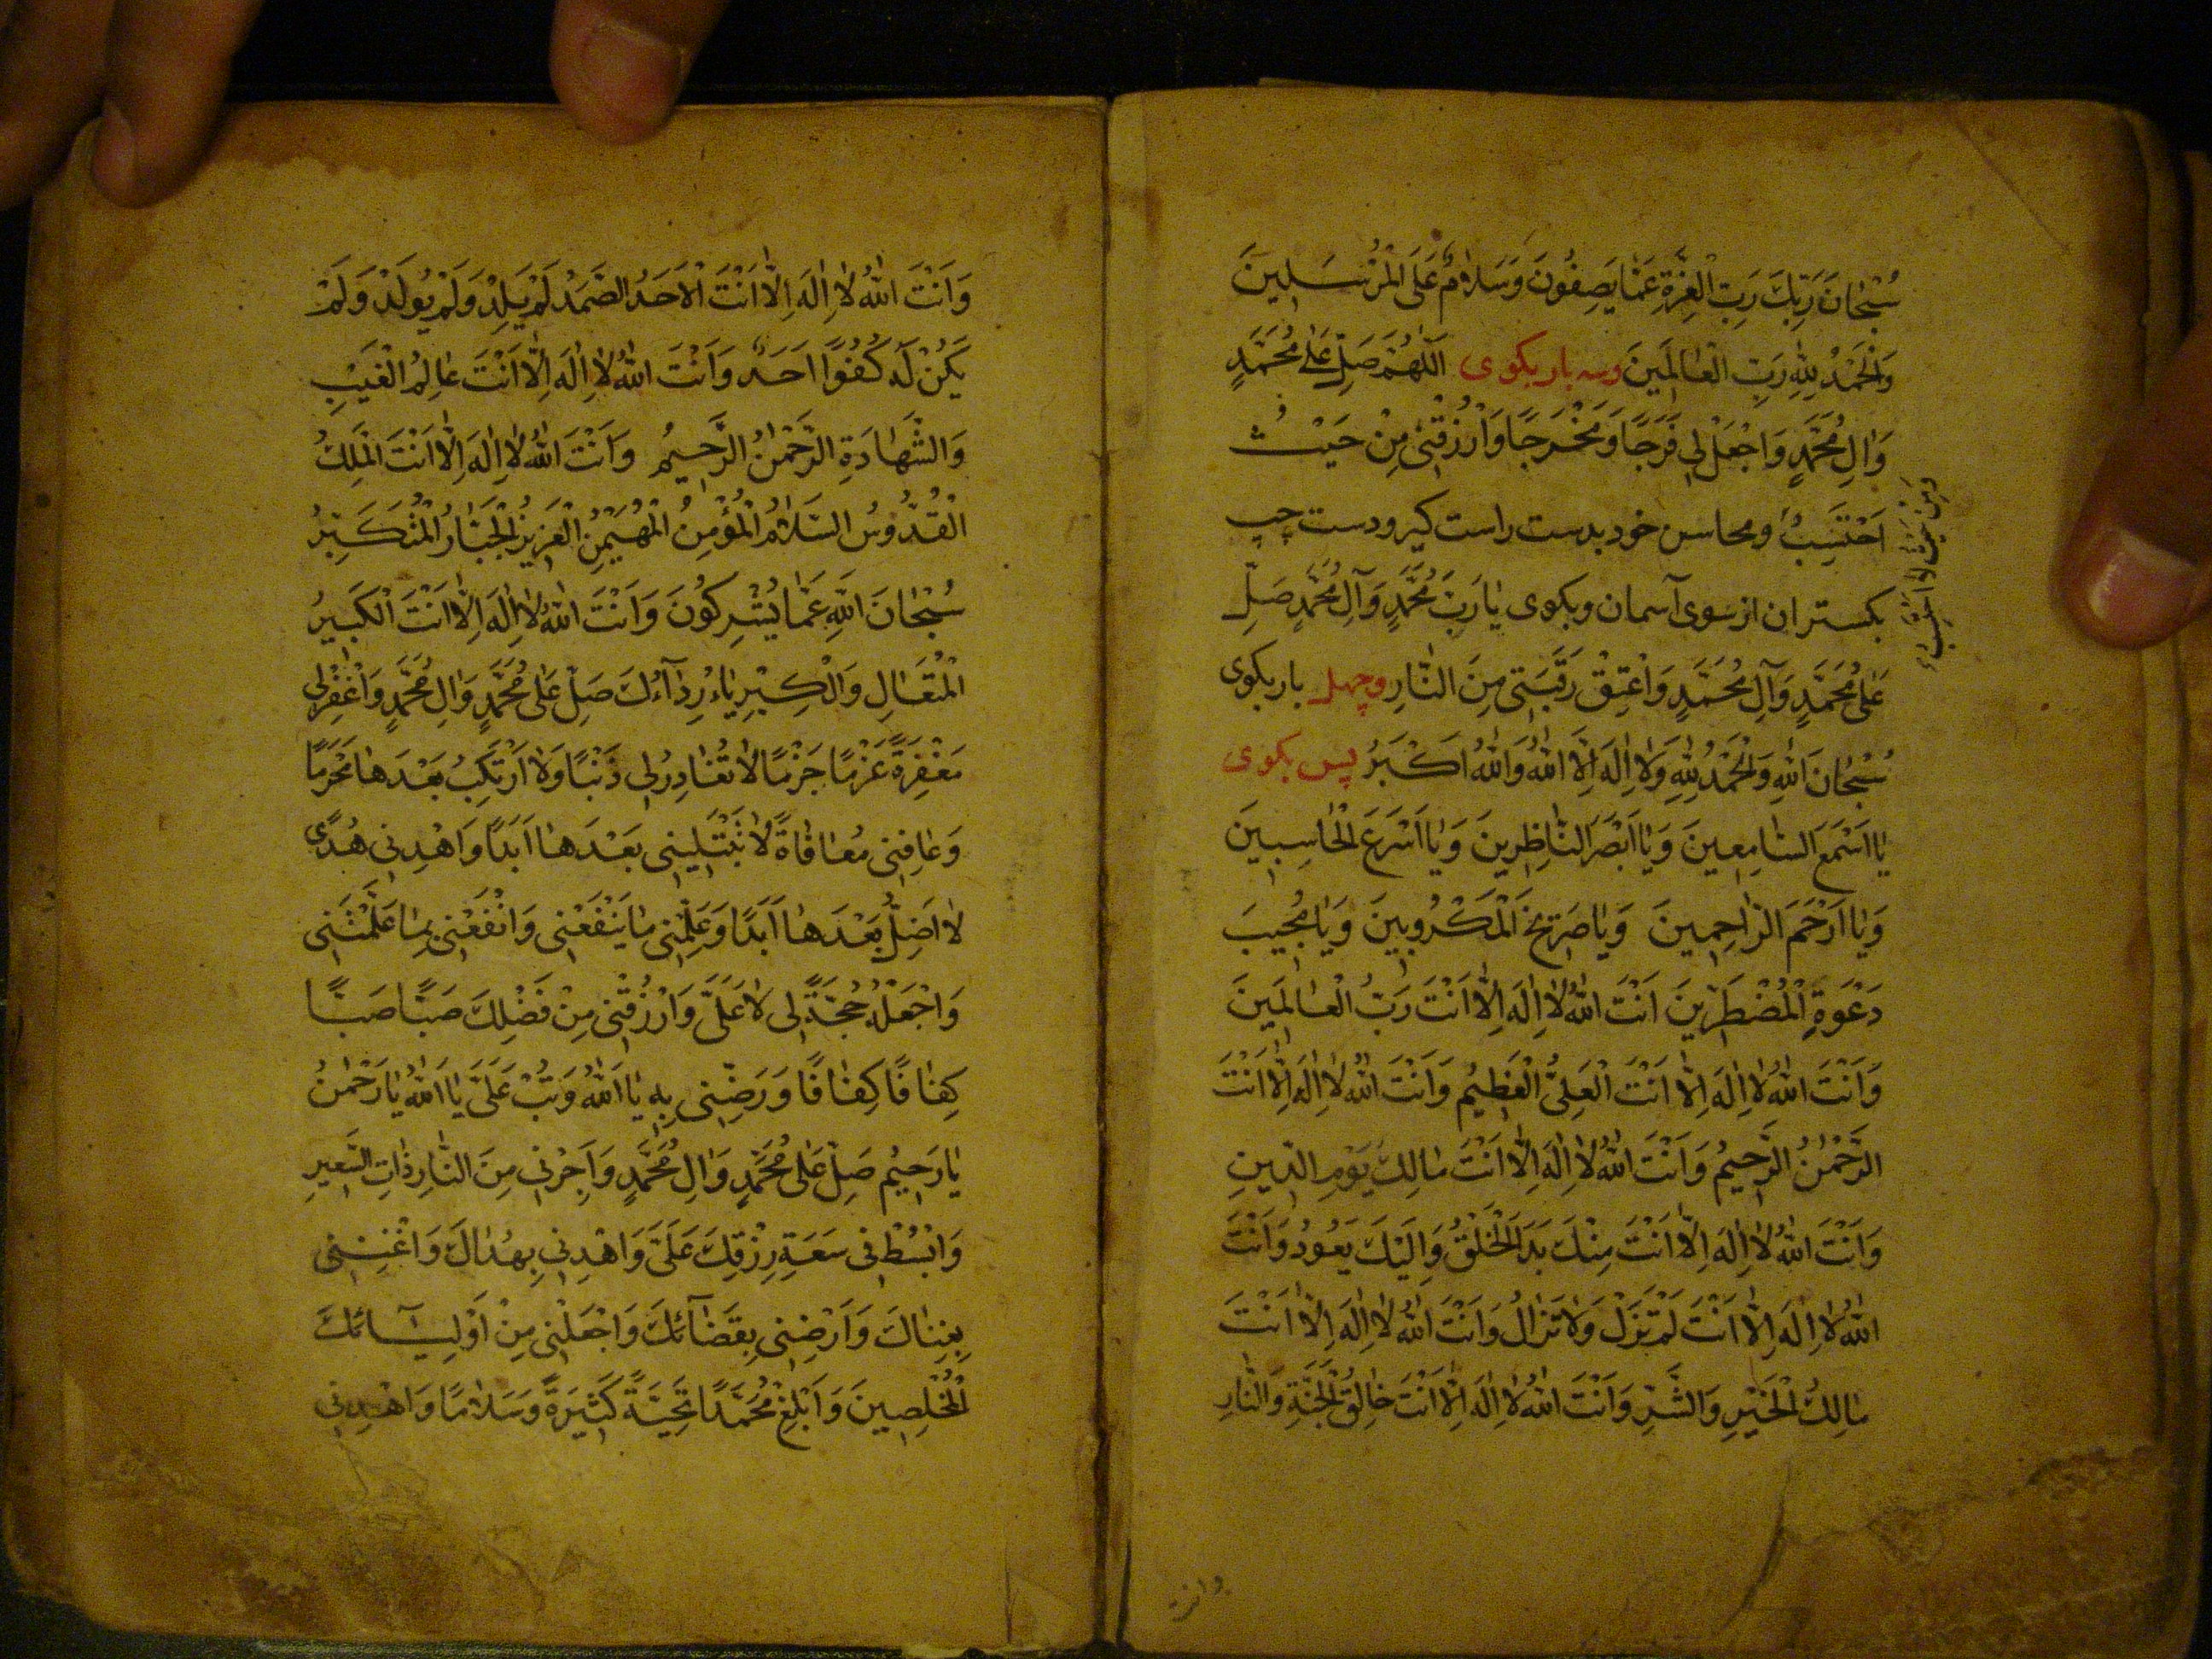 سُبْحَانَ رَبِّكَ رَبِّ الْعِزَّةِ عَمَّا يَصِفُونَ وَسَلَامٌ عَلَى الْمُرْسَلِينَ
وَالْحَمْدُ لِلّٰهِ رَبِّ الْعَالَمِينَ وسه بار بکوی اَللّٰهُمَّ صَلِّ عَلٰى مُحَمَّدٍ
وَاٰلِ مُحَمَّدٍ وَاجْعَلْ لِي فَرَجًا وَمَخْرَجًا وَارْزُقْنِي مِنْ حَيْثُ
اَحْتَسِبُ ومحاسن خود بدست راست کیر و دست چپ
وَمِنْ حَيْثُ لَا اَحْتَسِبُ
بکستران از سوی آسمان و بکوی يَا رَبَّ مُحَمَّدٍ وَآلِ مُحَمَّدٍ صَلِّ
عَلٰى مُحَمَّدٍ وَآلِ مُحَمَّدٍ وَاَعْتِقْ رَقَبَتِي مِنَ النَّارِ وچهل بار بکوی
سُبْحَانَ اللّٰهِ وَالْحَمْدُ لِلّٰهِ وَلَا اِلٰهَ اِلَّا اللّٰهُ وَاللّٰهُ اَكْبَرُ پس بکوی
يَا اَسْمَعَ السَّامِعِينَ وَيَا اَبْصَرَ النَّاظِرِينَ وَيَا اَسْرَعَ الْحَاسِبِينَ
وَيَا اَرْحَمَ الرَّاحِمِينَ وَيَا صَرِيخَ الْمَكْرُوبِينَ وَيَا مُجِيبَ
دَعْوَةِ الْمُضْطَرِّينَ اَنْتَ اللّٰهُ لَا اِلٰهَ اِلَّا اَنْتَ رَبُّ الْعَالَمِينَ
وَاَنْتَ اللّٰهُ لَا اِلٰهَ اِلَّا اَنْتَ الْعَلِيُّ الْعَظِيمُ وَاَنْتَ اللّٰهُ لَا اِلٰهَ اِلَّا اَنْتَ
الرَّحْمٰنُ الرَّحِيمُ وَاَنْتَ اللّٰهُ لَا اِلٰهَ اِلَّا اَنْتَ مَالِكُ يَوْمِ الدِّينِ
وَاَنْتَ اللّٰهُ لَا اِلٰهَ اِلَّا اَنْتَ مِنْكَ بَدَاَ الْخَلْقُ وَاِلَيْكَ يَعُودُ وَاَنْتَ
اللّٰهُ لَا اِلٰهَ اِلَّا اَنْتَ لَمْ تَزَلْ وَلَا تَزَالُ وَاَنْتَ اللّٰهُ لَا اِلٰهَ اِلَّا اَنْتَ
مَالِكُ الْخَيْرِ وَالشَّرِّ وَاَنْتَ اللّٰهُ لَا اِلٰهَ اِلَّا اَنْتَ خَالِقُ الْجَنَّةِ وَالنَّارِ
وانت
وَاَنْتَ اللّٰهُ لَا اِلٰهَ اِلَّا اَنْتَ الْاَحَدُ الصَّمَدُ لَمْ يَلِدْ وَلَمْ يُولَدْ وَلَمْ
يَكُنْ لَهُ كُفُوًا اَحَدٌ وَاَنْتَ اللّٰهُ لَا اِلٰهَ اِلَّا اَنْتَ عَالِمُ الْغَيْبِ
وَالشَّهَادَةِ الرَّحْمٰنُ الرَّحِيمُ وَاَنْتَ اللّٰهُ لَا اِلٰهَ اِلَّا اَنْتَ الْمَلِكُ
الْقُدُّوسُ السَّلَامُ الْمُؤْمِنُ الْمُهَيْمِنُ الْعَزِيزُ الْجَبَّارُ الْمُتَكَبِّرُ
سُبْحَانَ اللّٰهِ عَمَّا يُشْرِكُونَ وَاَنْتَ اللّٰهُ لَا اِلٰهَ اِلَّا اَنْتَ الْكَبِيرُ
الْمُتَعَالِ وَالْكِبْرِيَاءُ رِدَآءُكَ صَلِّ عَلٰى مُحَمَّدٍ وَاٰلِ مُحَمَّدٍ وَاغْفِرْ لِي
مَغْفِرَةً عَزْمًا جَزْمًا لَا تُغَادِرُ لِي ذَنْبًا وَلَا اَرْتَكِبُ بَعْدَهَا مُحَرَّمًا
وَعَافِنِي مُعَافَاةً لَا تَبْتَلِينِي بَعْدَهَا اَبَدًا وَاهْدِنِي هُدًى
لَا اَضِلُّ بَعْدَهَا اَبَدًا وَعَلِّمْنِي مَا يَنْفَعُنِي وَانْفَعْنِي بِمَا عَلَّمْتَنِي
وَاجْعَلْهُ حُجَّةً لِي لَا عَلَيَّ وَارْزُقْنِي مِنْ فَضْلِكَ صَبًّا صَبًّا
كِفَافًا كِفَافًا وَرَضِّنِي بِهِ يَا اَللّٰهُ وَتُبْ عَلَيَّ يَا اَللّٰهُ يَا رَحْمٰنُ
يَا رَحِيمُ صَلِّ عَلٰى مُحَمَّدٍ وَاٰلِ مُحَمَّدٍ وَاَجِرْنِي مِنَ النَّارِ ذَاتِ السَّعِيرِ
وَابْسُطْ فِي سَعَةِ رِزْقِكَ عَلَيَّ وَاهْدِنِي بِهُدَاكَ وَاَغْنِنِي
بِغِنَاكَ وَاَرْضِنِي بِقَضَآئِكَ وَاجْعَلْنِي مِنْ اَوْلِيَآئِكَ
الْمُخْلِصِينَ وَاَبْلِغْ مُحَمَّدًا تَحِيَّةً كَثِيرَةً وَسَلَامًا وَاهْدِنِي